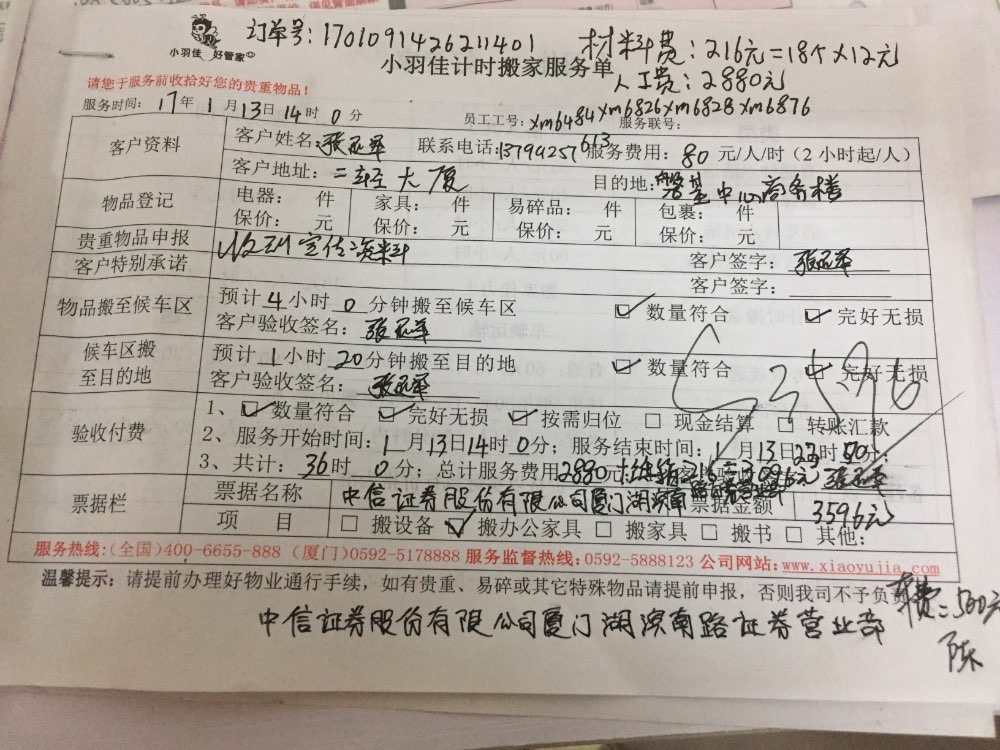 订单号:1701091426211401
材料费:216元=18个×12元
小羽佳 好管家
小羽佳计时搬家服务单
人工费:2880元
请您于服务前收拾好您的贵重物品!
服务时间: 17年 1 月 13日 14时 0分
员工工号: xm6484 xm6826 xm6828 xm6876
服务联号:
客户资料
客户姓名:
联系电话:13794257613
服务费用: 80 元/人/时(2小时起/人)
客户地址: 二轻大厦
目的地: 磐基中心商务楼
物品登记
电器: 件 家具: 件 易碎品: 件 包裹: 件
保价: 元 保价: 元 保价: 元 保价: 元
贵重物品申报
收到宣传资料
客户签字:
客户特别承诺
客户签字:
物品搬至候车区
预计 4 小时 0 分钟搬至候车区
☑ 数量符合 ☑ 完好无损
客户验收签名:
候车区搬至目的地
预计 1 小时 20 分钟搬至目的地
☑ 数量符合 ☑ 完好无损
客户验收签名:
3596
验收付费
1、☑ 数量符合 ☑ 完好无损 ☑ 按需归位 □ 现金结算 □ 转账汇款
2、服务开始时间: 1 月 13日 14时 0分; 服务结束时间: 1 月 13日 23时 50分;
3、共计: 36时 0分; 总计服务费用2880元
票据栏
票据名称 中信证券股份有限公司厦门湖滨南路证券营业部 票据金额 3596元
项 目 □ 搬设备 ☑ 搬办公家具 □ 搬家具 □ 搬书 □ 其他:
服务热线:(全国)400-6655-888 (厦门)0592-5178888 服务监督热线:0592-5888123 公司网站:www.xiaoyujia.com
温馨提示:请提前办理好物业通行手续,如有贵重、易碎或其它特殊物品请提前申报,否则我司不予负责
车费:500元
中信证券股份有限公司厦门湖滨南路证券营业部
陈